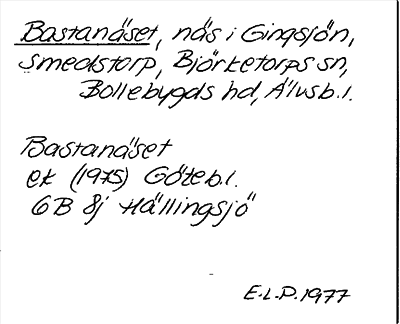 Bastanäset, näs i Gingsjön,
Smeckstorp, Björketorps sn,
Bollebygds hd, Älvsb.l.
Bastanäset
ek (1975) Göteb.l.
6B 8j Hällingsjö
E.L.P.1977